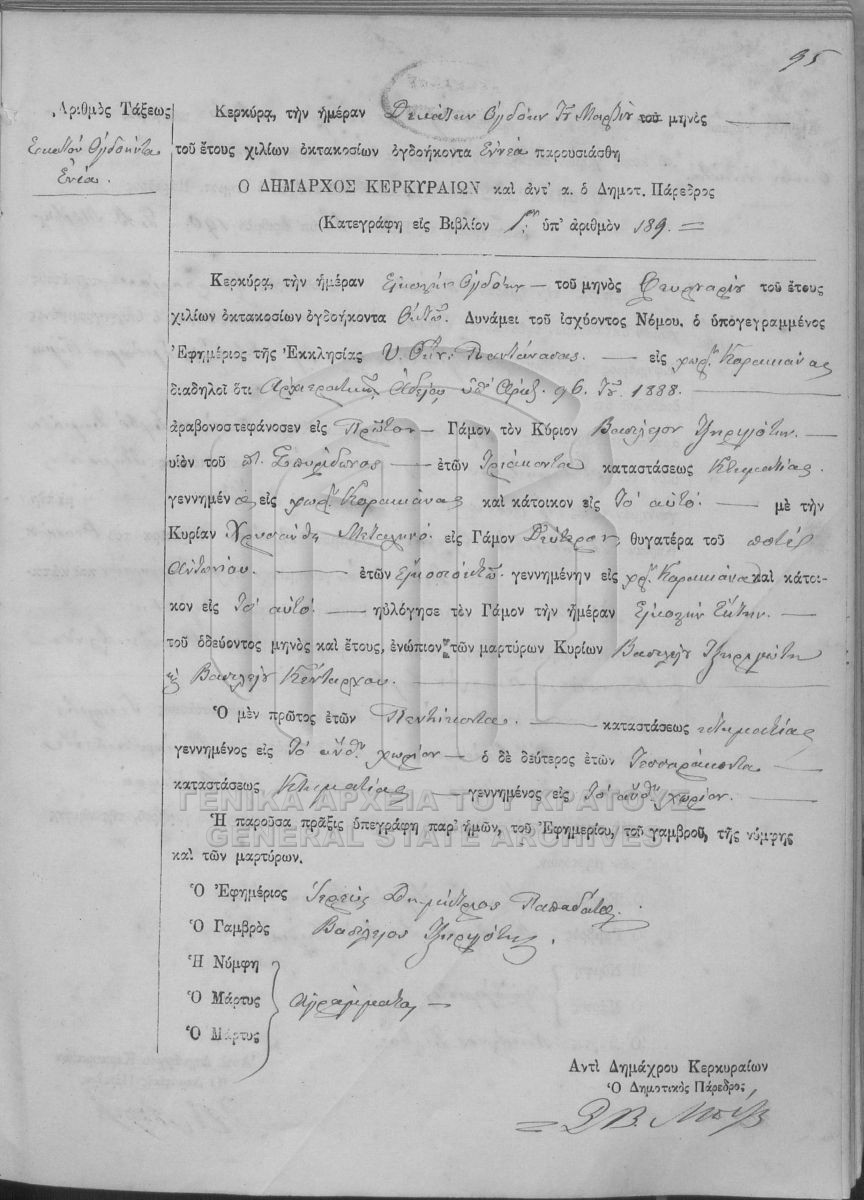 95
Ἀριθμὸς Τάξεως
Εκατόν Ογδοήντα
Εννέα.
Κερκύρᾳ, τὴν ἡμέραν Δεκάτην Ογδόην Τȣ Μαρτίȣ τοῦ μηνὸς
τοῦ ἔτους χιλίων ὀκτακοσίων ὀγδοήκοντα Εννέα παρουσιάσθη
Ὁ ΔΗΜΑΡΧΟΣ ΚΕΡΚΥΡΑΙΩΝ καὶ ἀντ' α. ὁ Δημοτ. Πάρεδρος
(Κατεγράφη εἰς Βιβλίον 1ον ὑπ' ἀριθμὸν 189.
Κερκύρᾳ, τὴν ἡμέραν Εικοστήν Ογδόην τοῦ μηνὸς Φευρουαρίȣ τοῦ ἔτους
χιλίων ὀκτακοσίων ὀγδοήκοντα Οκτώ. Δυνάμει τοῦ ἰσχύοντος Νόμου, ὁ ὑπογεγραμμένος
Ἐφημέριος τῆς Ἐκκλησίας Υ. Θκȣ Παντάνασας. εἰς χωρ. Κορακιάνας
διαδηλοῖ ὅτι Αρχιερατικῇ Αδείᾳ ὑπ' Αριθ. 96. Τȣ 1888.
ἀραβονοστεφάνοσεν εἰς Πρῶτον Γάμον τὸν Κύριον Βασίλειον
υἱὸν τοῦ π. Σπυρίδωνος ἐτῶν Τριάκοντα καταστάσεως Κτηματίας.
γεννημένος εἰς χωρ. Κορακιάνας καὶ κάτοικον εἰς Το αυτό. μὲ τὴν
Κυρίαν Χρυσάνθη Μεταλινό. εἰς Γάμον Δεύτερον, θυγατέρα τοῦ ποτέ
Αντωνίου. ἐτῶν Εικοσιοκτώ. γεννημένην εἰς χωρ. Κορακιάνα καὶ κάτοι-
κον εἰς Το αυτό. ηὐλόγησε τὸν Γάμον τὴν ἡμέραν Εικοστήν Έκτην.
τοῦ ὁδεύοντος μηνὸς καὶ ἔτους, ἐνώπιον τῶν μαρτύρων Κυρίων Βασιλείȣ
ϗ Βασιλείȣ Κένταρχου.
Ὁ μὲν πρῶτος ἐτῶν Πεντήκοντα. καταστάσεως κτηματίας
γεννημένος εἰς Το αυθ. χωρίον ὁ δὲ δεύτερος ἐτῶν Τεσσαράκοντα
καταστάσεως Κτηματίας γεννημένος εἰς Το αυθ. χωρίον.
ΓΕΝΙΚΑ ΑΡΧΕΙΑ ΤΟΥ ΚΡΑΤΟΥΣ
Ἡ παροῦσα πρᾶξις ὑπεγράφη παρ' ἡμῶν, τοῦ Ἐφημερίου, τοῦ γαμβροῦ, τῆς νύμφης
GENERAL STATE ARCHIVES
καὶ τῶν μαρτύρων.
Ὁ Ἐφημέριος Ιερεύς Δημήτριος Παπαδάτος.
Ὁ Γαμβρὸς Βασίλειος
Ἡ Νύμφη
Ὁ Μάρτυς Αγράμματοι
Ὁ Μάρτυς
Ἀντὶ Δημάχρου Κερκυραίων
Ὁ Δημοτικὸς Πάρεδρος